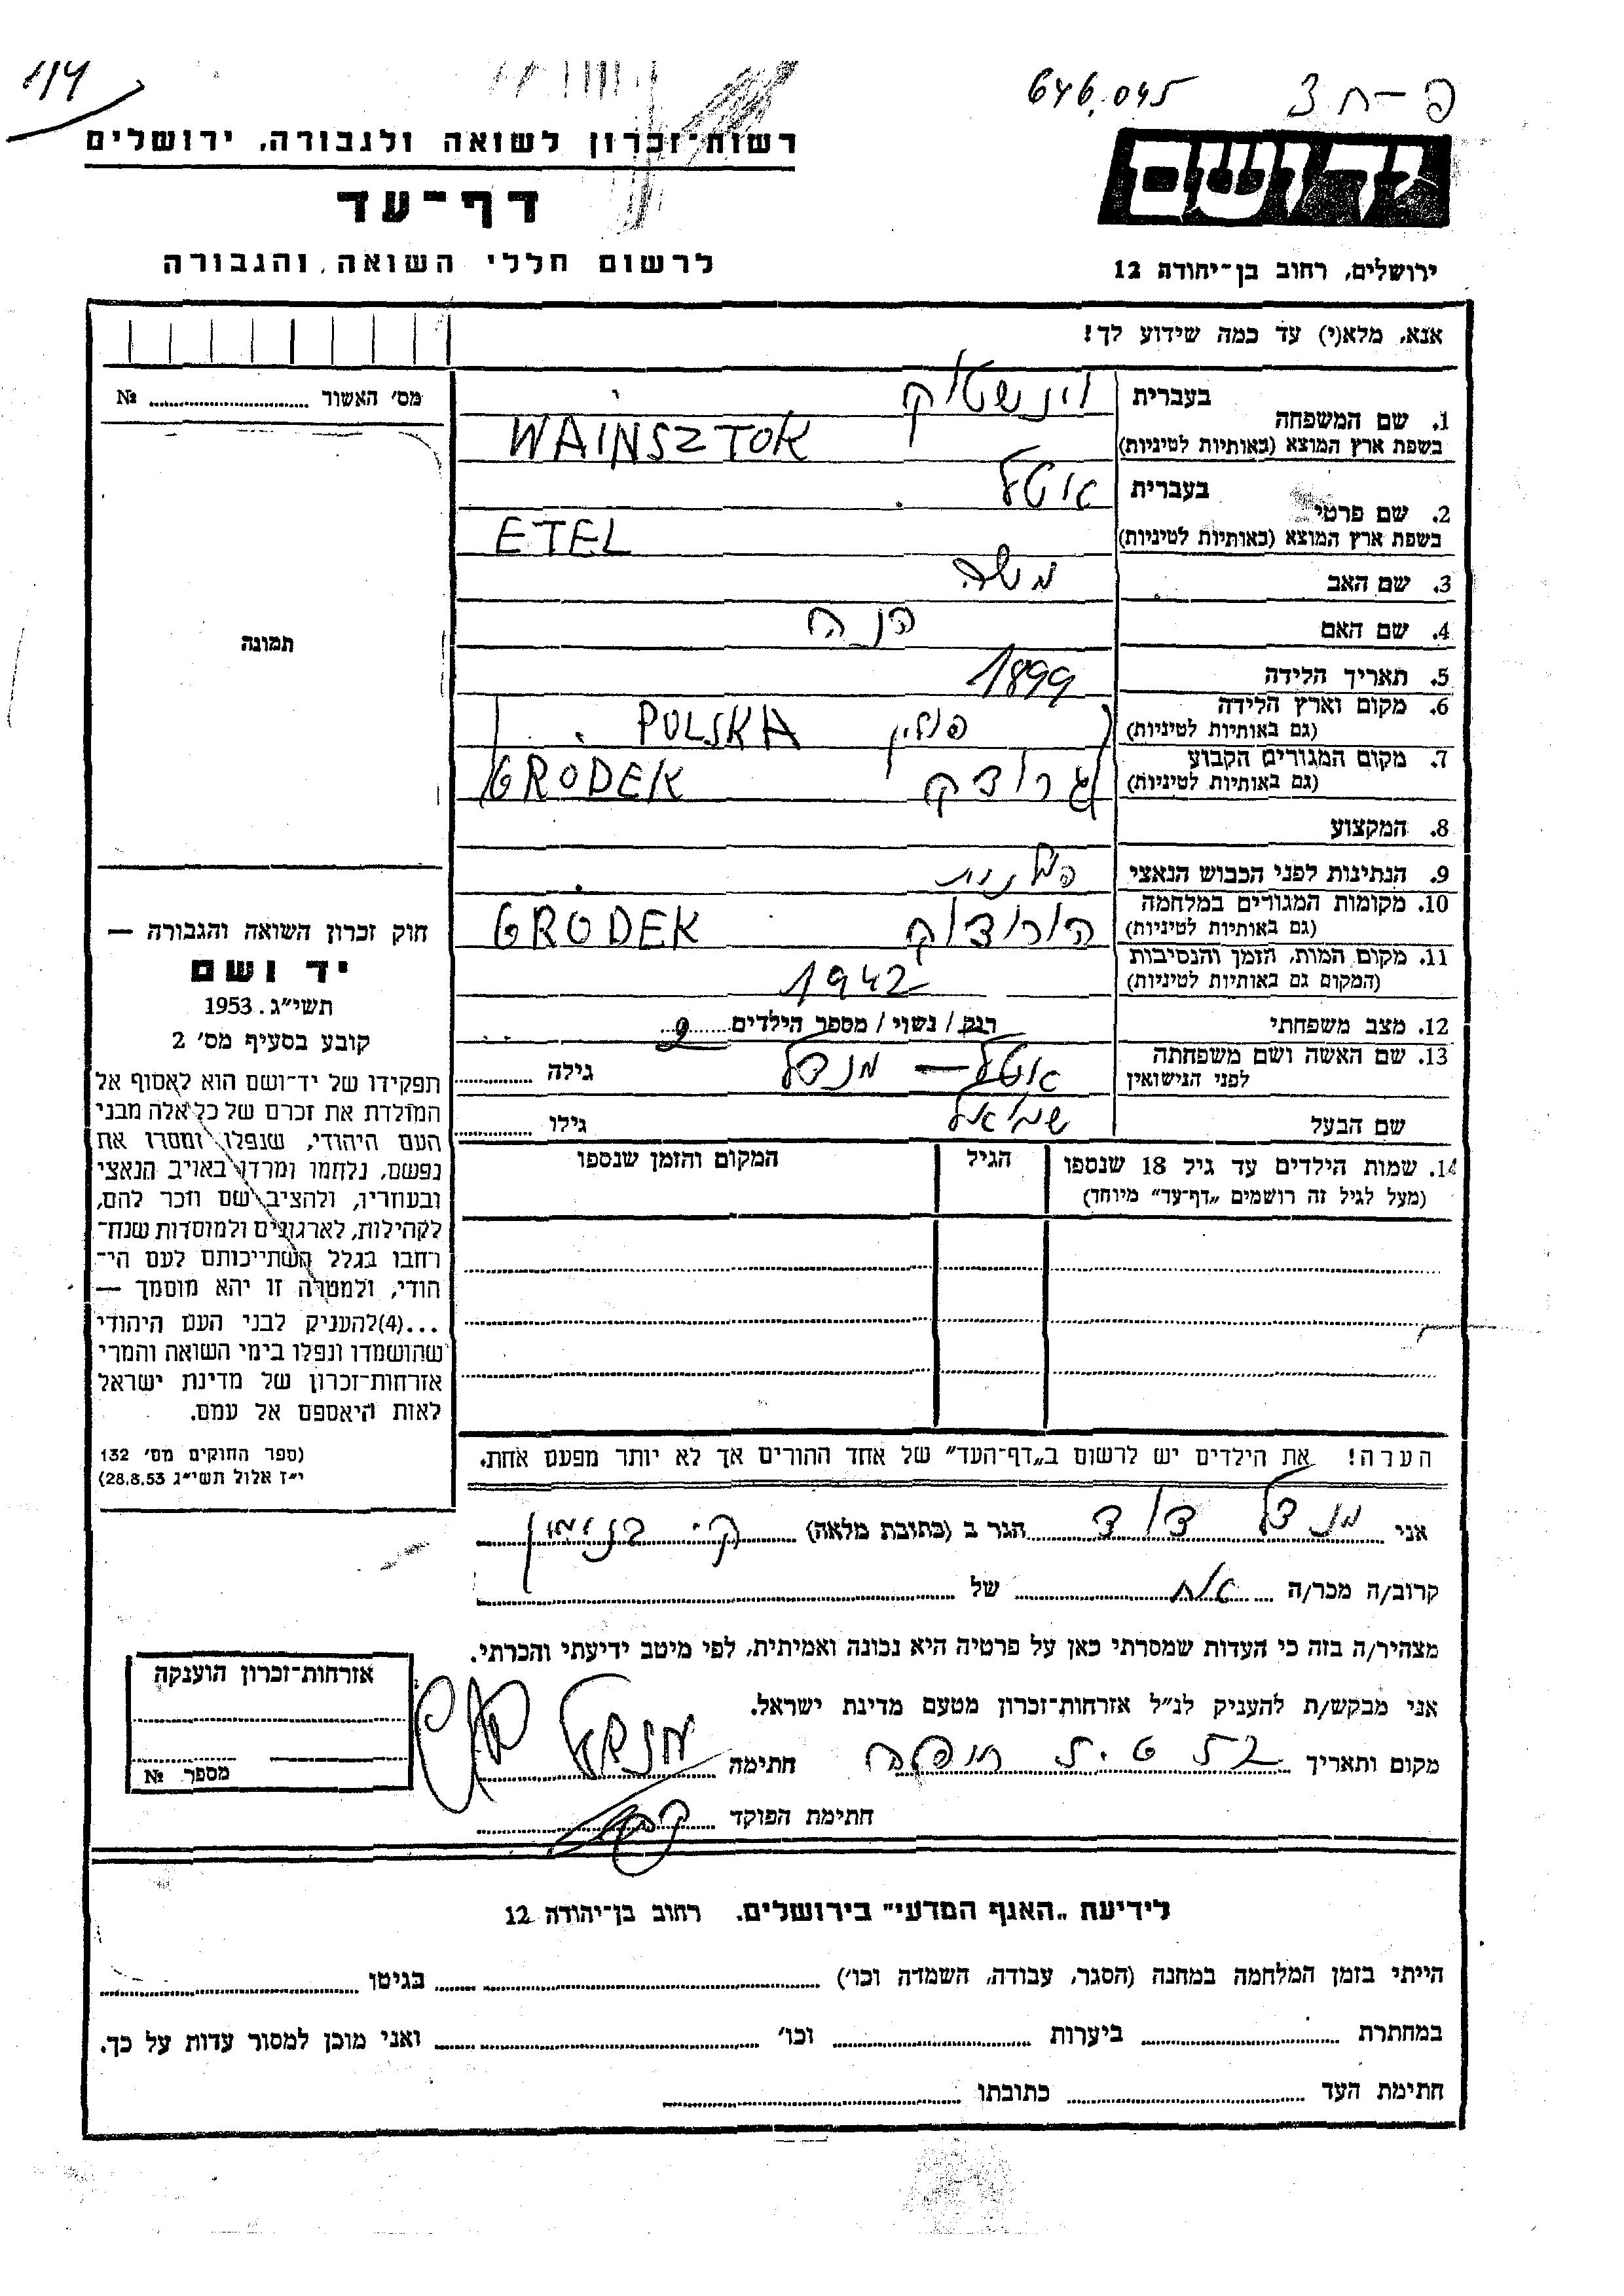 114
646.045
פ-ח 3
רשות-זכרון לשואה ולגבורה, ירושלים
ידושם
דף-עד
לרשום חללי השואה והגבורה
ירושלים, רחוב בן-יהודה 12
אנא, מלא(י) עד כמה שידוע לך!
מס׳ האשור № ..........
1. שם המשפחה בעברית וינשטוק
בשפת ארץ המוצא (באותיות לטיניות) WAINSZTOK
2. שם פרטי בעברית אטל
בשפת ארץ המוצא (באותיות לטיניות) ETEL
3. שם האב משה
4. שם האם חנה
תמונה
5. תאריך הלידה 1899
6. מקום וארץ הלידה (גם באותיות לטיניות) פולין POLSKA
7. מקום המגורים הקבוע (גם באותיות לטיניות) גרודק GRODEK
8. המקצוע
9. הנתינות לפני הכבוש הנאצי פולנית
10. מקומות המגורים במלחמה (גם באותיות לטיניות) הורודוק GRODEK
11. מקום המות, הזמן והנסיבות (המקום גם באותיות לטיניות) 1942
12. מצב משפחתי רווק / נשוי / מספר הילדים 2
13. שם האשה ושם משפחתה לפני הנישואין אטל – מנדל גילה ..........
שם הבעל שמואל גילו ..........
14. שמות הילדים עד גיל 18 שנספו הגיל המקום והזמן שנספו
(מעל לגיל זה רושמים „דף-עד" מיוחד)
חוק זכרון השואה והגבורה —
יד ושם
תשי״ג. 1953
קובע בסעיף מס׳ 2
תפקידו של יד-ושם הוא לאסוף אל
המולדת את זכרם של כל אלה מבני
העם היהודי, שנפלו ומסרו את
נפשם, נלחמו ומרדו באויב הנאצי
ובעוזריו, ולהציב שם וזכר להם,
לקהילות, לארגונים ולמוסדות שנח-
רחבו בגלל השתייכותם לעם הי-
הודי, ולמטרה זו יהא מוסמך —
...(4)להעניק לבני העם היהודי
שהושמדו ונפלו בימי השואה והמרי
אזרחות-זכרון של מדינת ישראל
לאות היאספם אל עמם.
(ספר החוקים מס׳ 132
י״ז אלול תשי״ג 28.8.53)
הערה! את הילדים יש לרשום ב„דף-העד" של אחד ההורים אך לא יותר מפעם אחת.
אני מנדל דוד הגר ב (כתובת מלאה) ק. בנימין
קרוב/ה מכר/ה אח של ..........
מצהיר/ה בזה כי העדות שמסרתי כאן על פרטיה היא נכונה ואמיתית, לפי מיטב ידיעתי והכרתי.
אני מבקש/ת להעניק לנ״ל אזרחות-זכרון מטעם מדינת ישראל.
מקום ותאריך חיפה חתימה מנדל דוד
חתימת הפוקד
אזרחות-זכרון הוענקה
מספר №
לידיעת „האגף המדעי" בירושלים, רחוב בן-יהודה 12
הייתי בזמן המלחמה במחנה (הסגר, עבודה, השמדה וכו׳) .......... בגיטו ..........
במחתרת .......... ביערות .......... וכו׳ .......... ואני מוכן למסור עדות על כך.
חתימת העד .......... כתובתו ..........